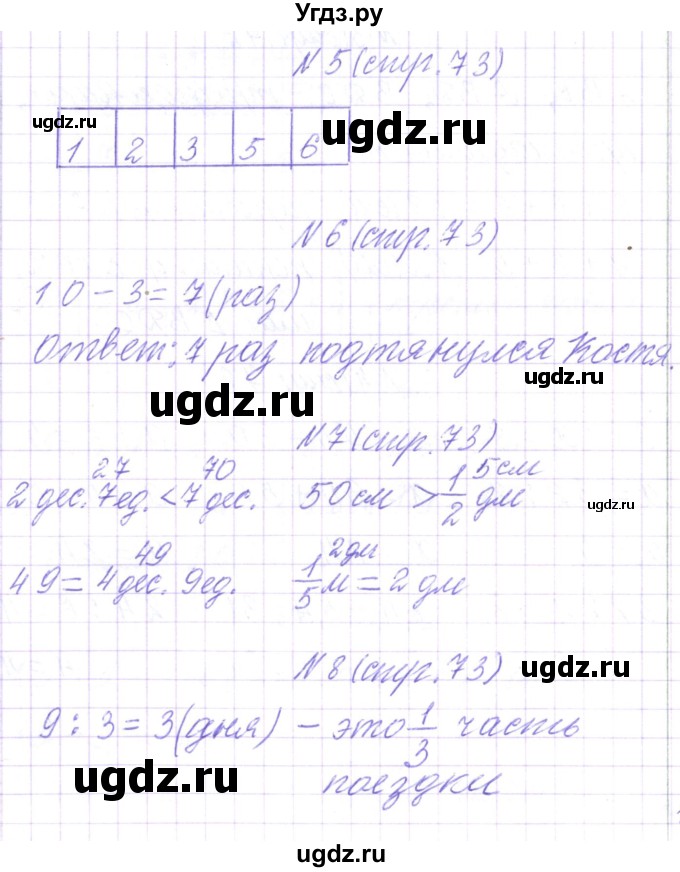 Угдз.ру
N 5 (стр. 73)
ugdz.ru ugdz.ru
1 2 3 5 6
N 6 (стр. 73)
10 - 3 = 7 (раз)
Ответ: 7 раз подтянулся Костя.
ugdz.ru
ugdz.ru
N 7 (стр. 73)
27 70 5 см
2 дес. 7 ед. < 7 дес. 50 см > 1/2 дм
ugdz.ru
49 2 дм
49 = 4 дес. 9 ед. 1/5 м = 2 дм
N 8 (стр. 73) ugdz.ru
9 : 3 = 3 (дня) - это 1/3 часть
ugdz.ru поездки
ugdz.ru